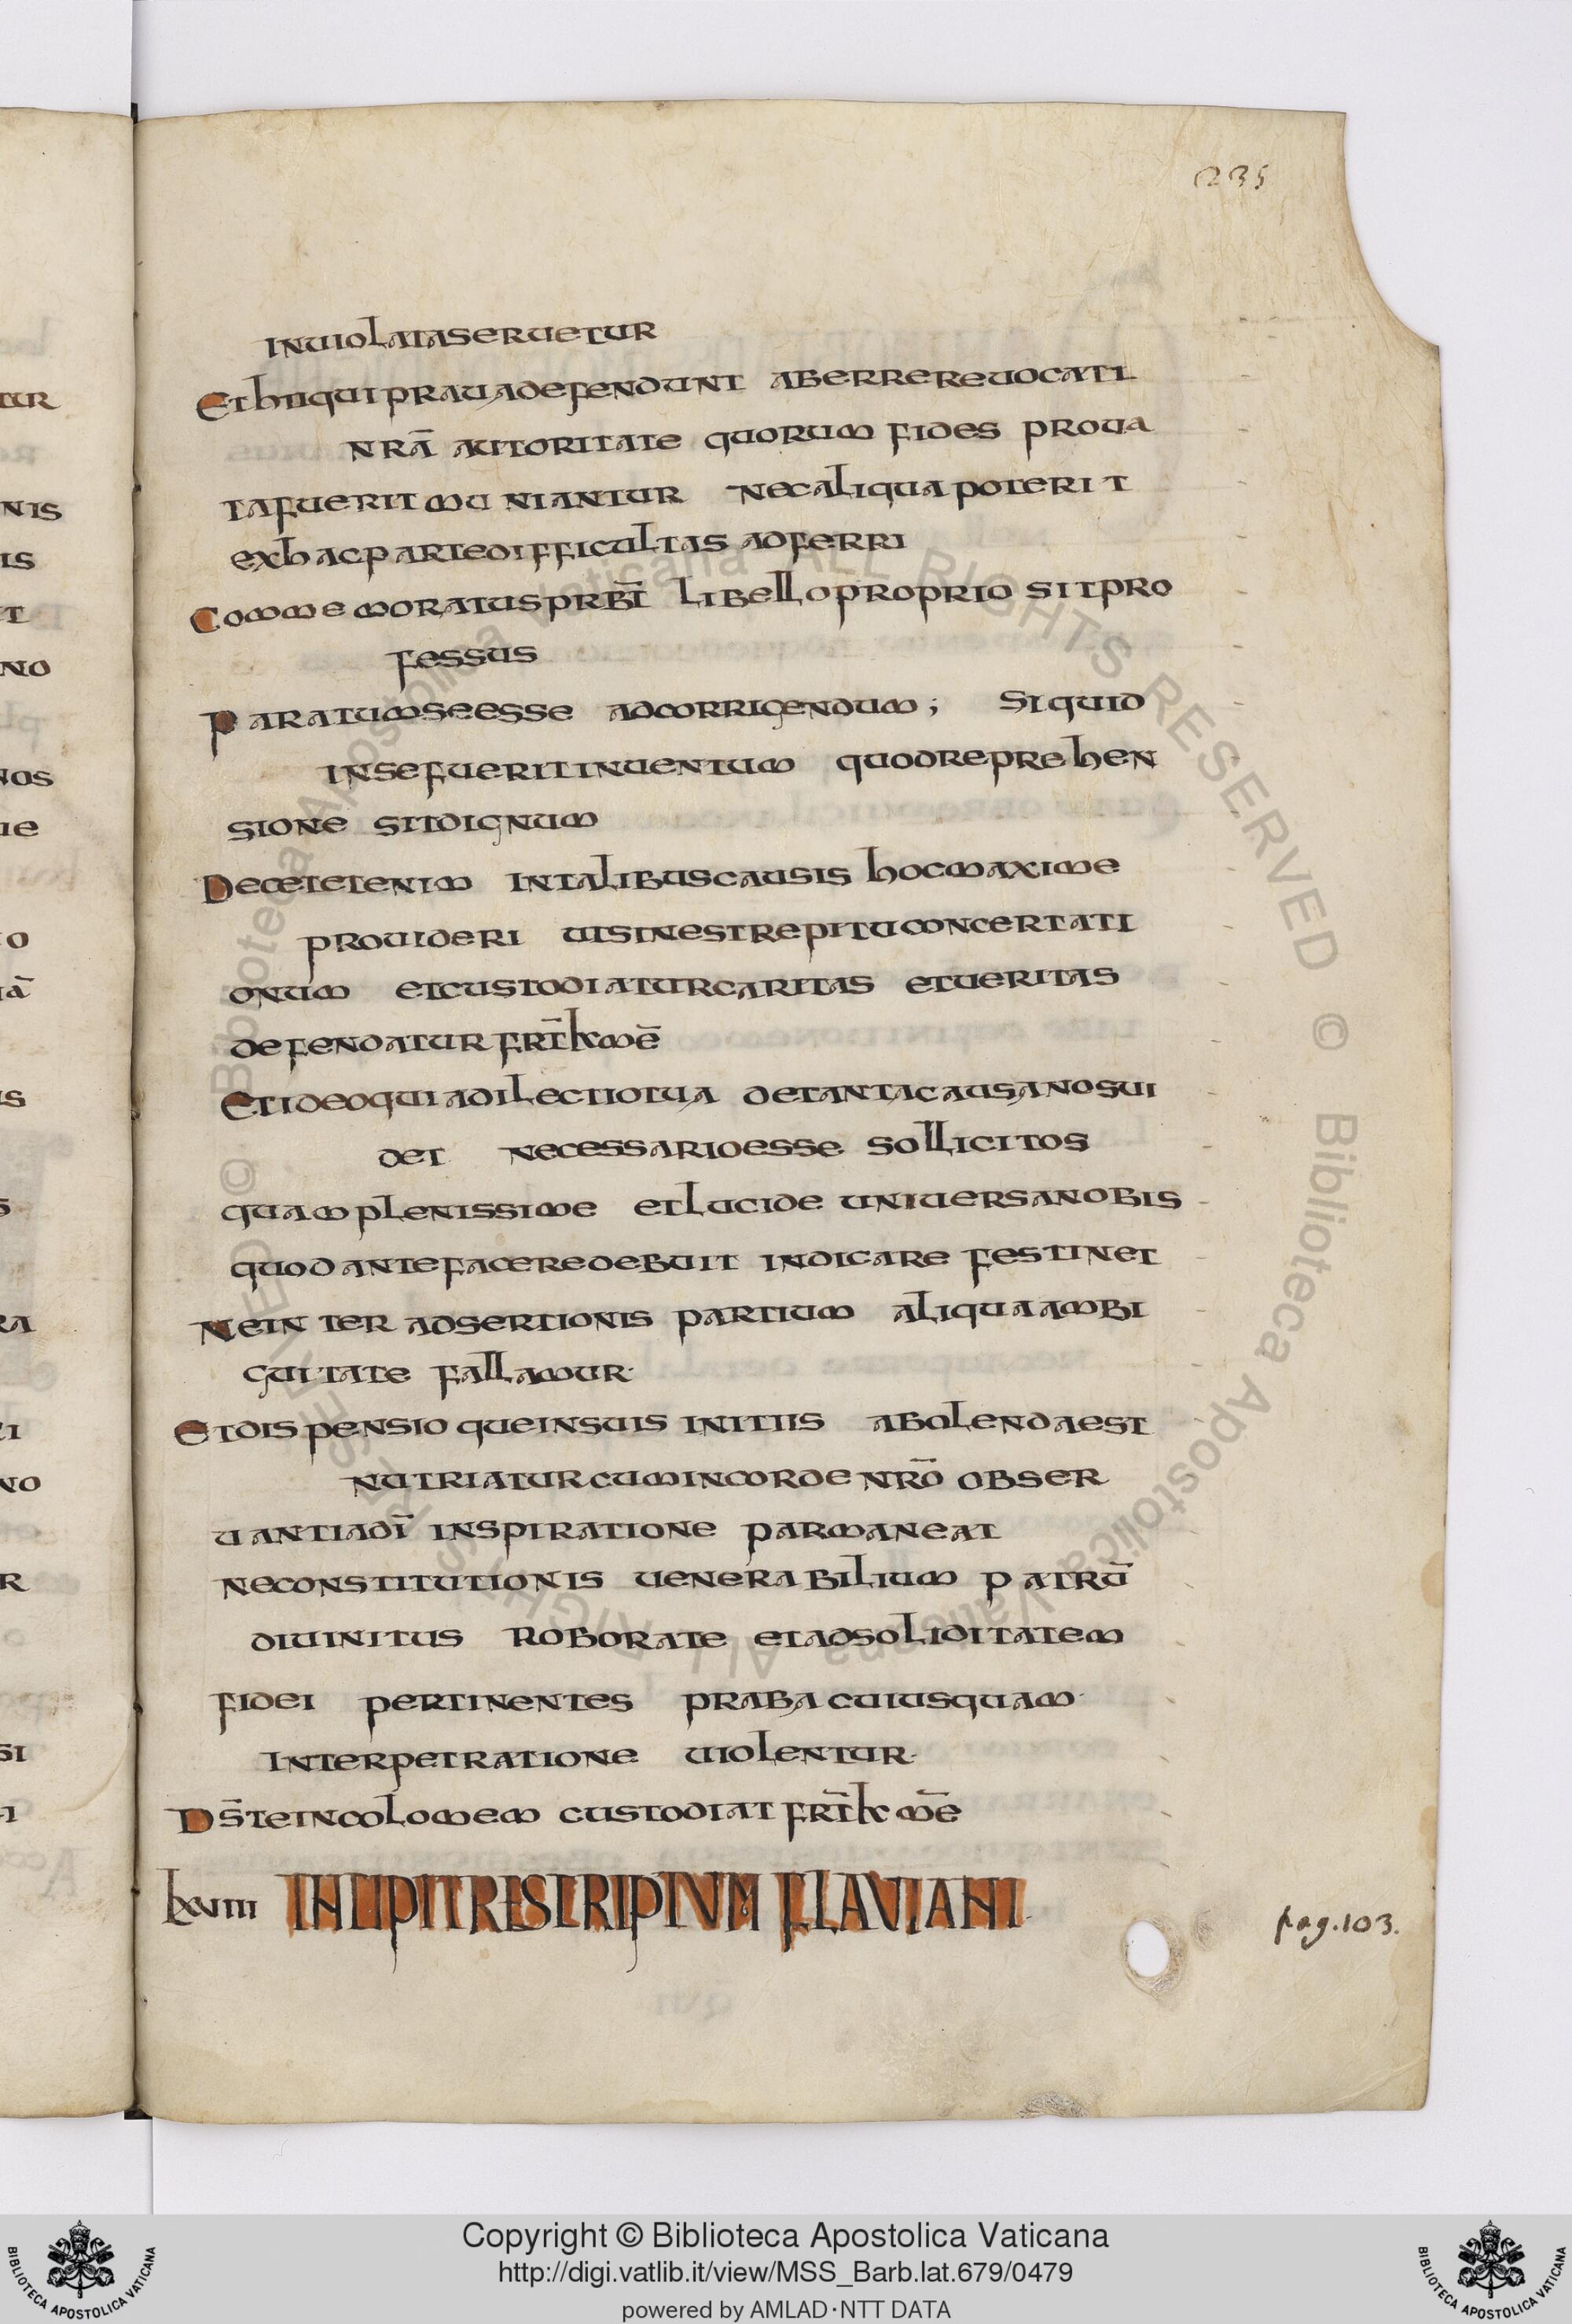 235
inuiolata seruetur
Et hii qui praua defendunt ab errere uocati
nrā autoritate quorum fides proua
ta fuerit muniantur nec aliqua poterit
ex hac parte difficultas adferri
Commemoratus prbī libello proprio sit pro
fessus
Paratum se esse ad corrigendum; Si quid
in se fuerit inuentum quod reprehen
sione sit dignum
Decet etenim in talibus causis hoc maxime
prouideri ut sine strepitu concertati
onum et custodiatur caritas et ueritas
defendatur fr̄t kmē
Et ideo quia dilectio tua de tanta causa nos ui
det necessario esse sollicitos
quam plenissime et lucide uniuersa nobis
quod ante facere debuit indicare festinet
Ne inter adsertionis partium aliqua ambi
guitate fallamur·
Et dispensio que in suis initiis abolenda est
nutriatur cum in corde nrō obser
uantia dī inspiratione parmaneat
ne constitutionis uenerabilium patrū
diuinitus roborate et ad soliditatem
fidei pertinentes praba cuiusquam·
interpetratione uiolentur·
Ds̄ te incolomem custodiat fr̄t k mē
lxviiii INCIPIT RESCRIPTVM FLAVIANI
pag. 103.
Copyright © Biblioteca Apostolica Vaticana
http://digi.vatlib.it/view/MSS_Barb.lat.679/0479
powered by AMLAD·NTT DATA
BIBLIOTECA APOSTOLICA VATICANA
BIBLIOTECA APOSTOLICA VATICANA
© Biblioteca Apostolica Vaticana ALL RIGHTS RESERVED © Biblioteca Apostolica Vaticana ALL RIGHTS RESERVED